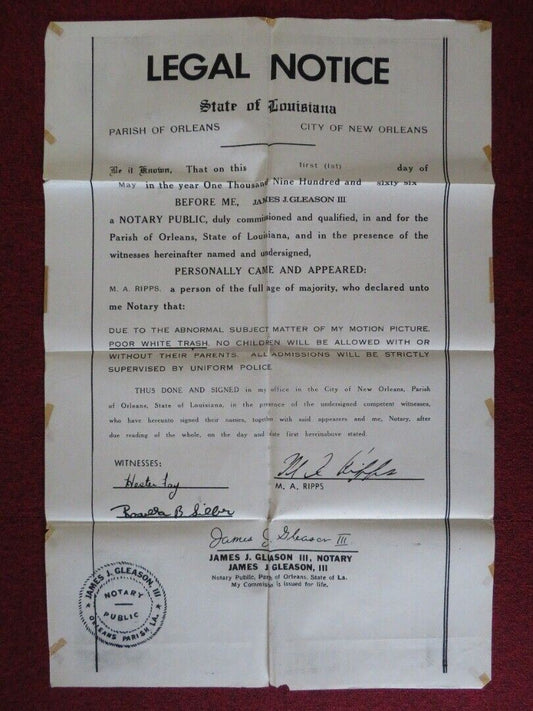 LEGAL NOTICE
State of Louisiana
PARISH OF ORLEANS CITY OF NEW ORLEANS
Be it Known, That on this first (1st) day of
May in the year One Thousand Nine Hundred and sixty six
BEFORE ME, JAMES J. GLEASON III
a NOTARY PUBLIC, duly commissioned and qualified, in and for the
Parish of Orleans, State of Louisiana, and in the presence of the
witnesses hereinafter named and undersigned,
PERSONALLY CAME AND APPEARED:
M. A. RIPPS, a person of the full age of majority, who declared unto
me Notary that:
DUE TO THE ABNORMAL SUBJECT MATTER OF MY MOTION PICTURE,
POOR WHITE TRASH, NO CHILDREN WILL BE ALLOWED WITH OR
WITHOUT THEIR PARENTS. ALL ADMISSIONS WILL BE STRICTLY
SUPERVISED BY UNIFORM POLICE
THUS DONE AND SIGNED in my office in the City of New Orleans, Parish
of Orleans, State of Louisiana, in the presence of the undersigned competent witnesses,
who have hereunto signed their names, together with said appearers and me, Notary, after
due reading of the whole, on the day and date first hereinabove stated.
WITNESSES:
M A Ripps
M. A. RIPPS
James J. Gleason III
JAMES J. GLEASON III, NOTARY
JAMES J. GLEASON, III
Notary Public, Parish of Orleans, State of La.
My Commission is issued for life.
JAMES J. GLEASON, III
NOTARY
PUBLIC
ORLEANS PARISH LA.